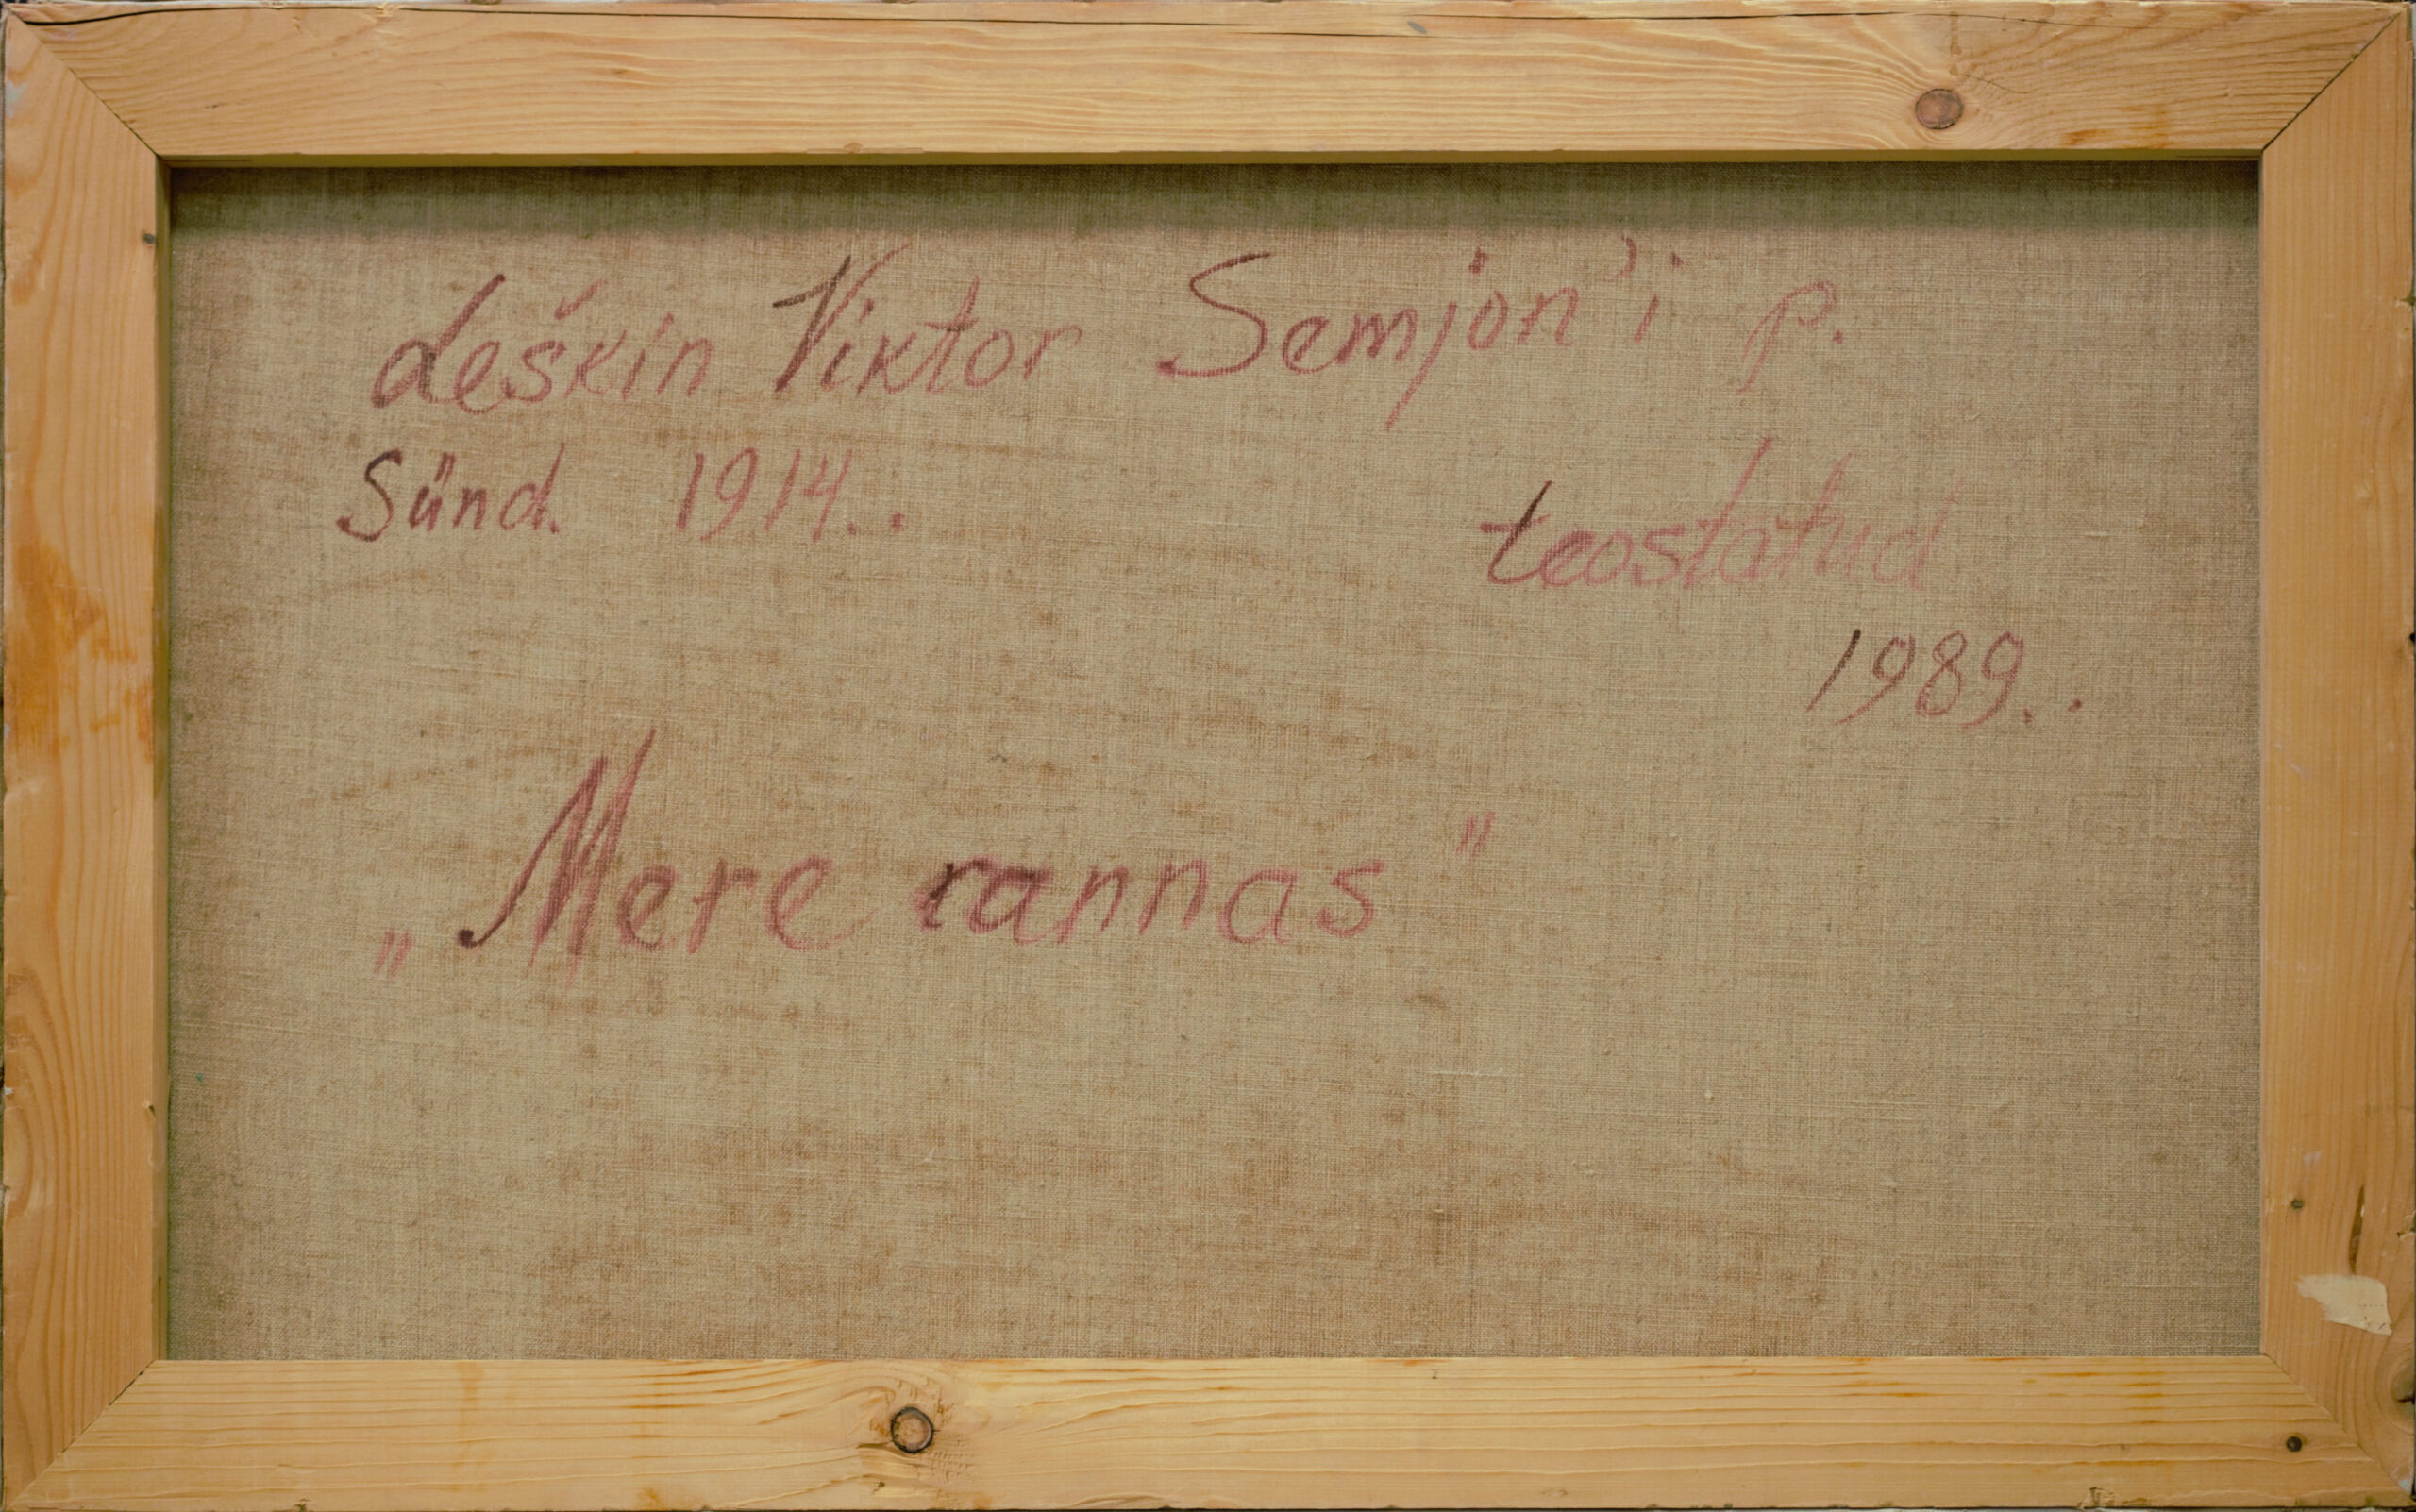 Leškin Viktor Semjon'i p.
Sünd. 1914..
teostatud
1989..
„Mere rannas"